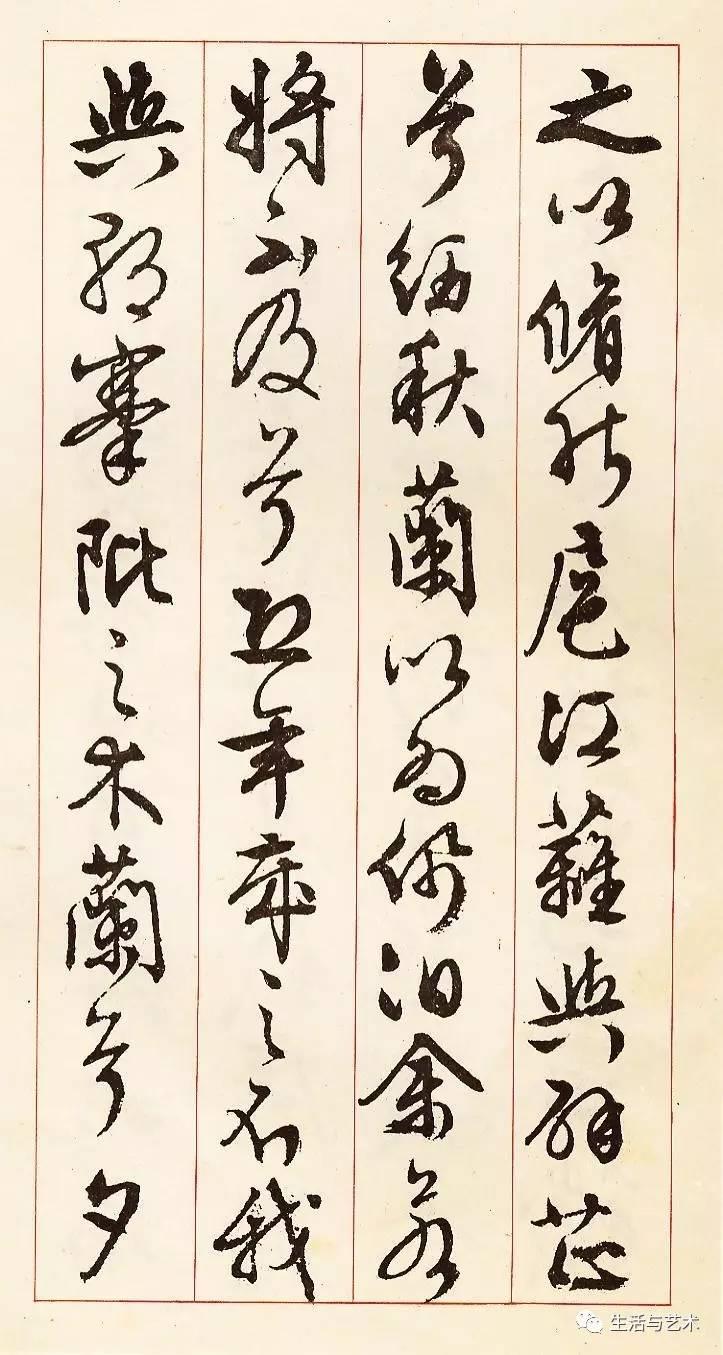 之以脩能扈江蘺與辟芷
兮紉秋蘭以為佩汩余若
將不及兮恐年歲之不我
與朝搴阰之木蘭兮夕
生活与艺术